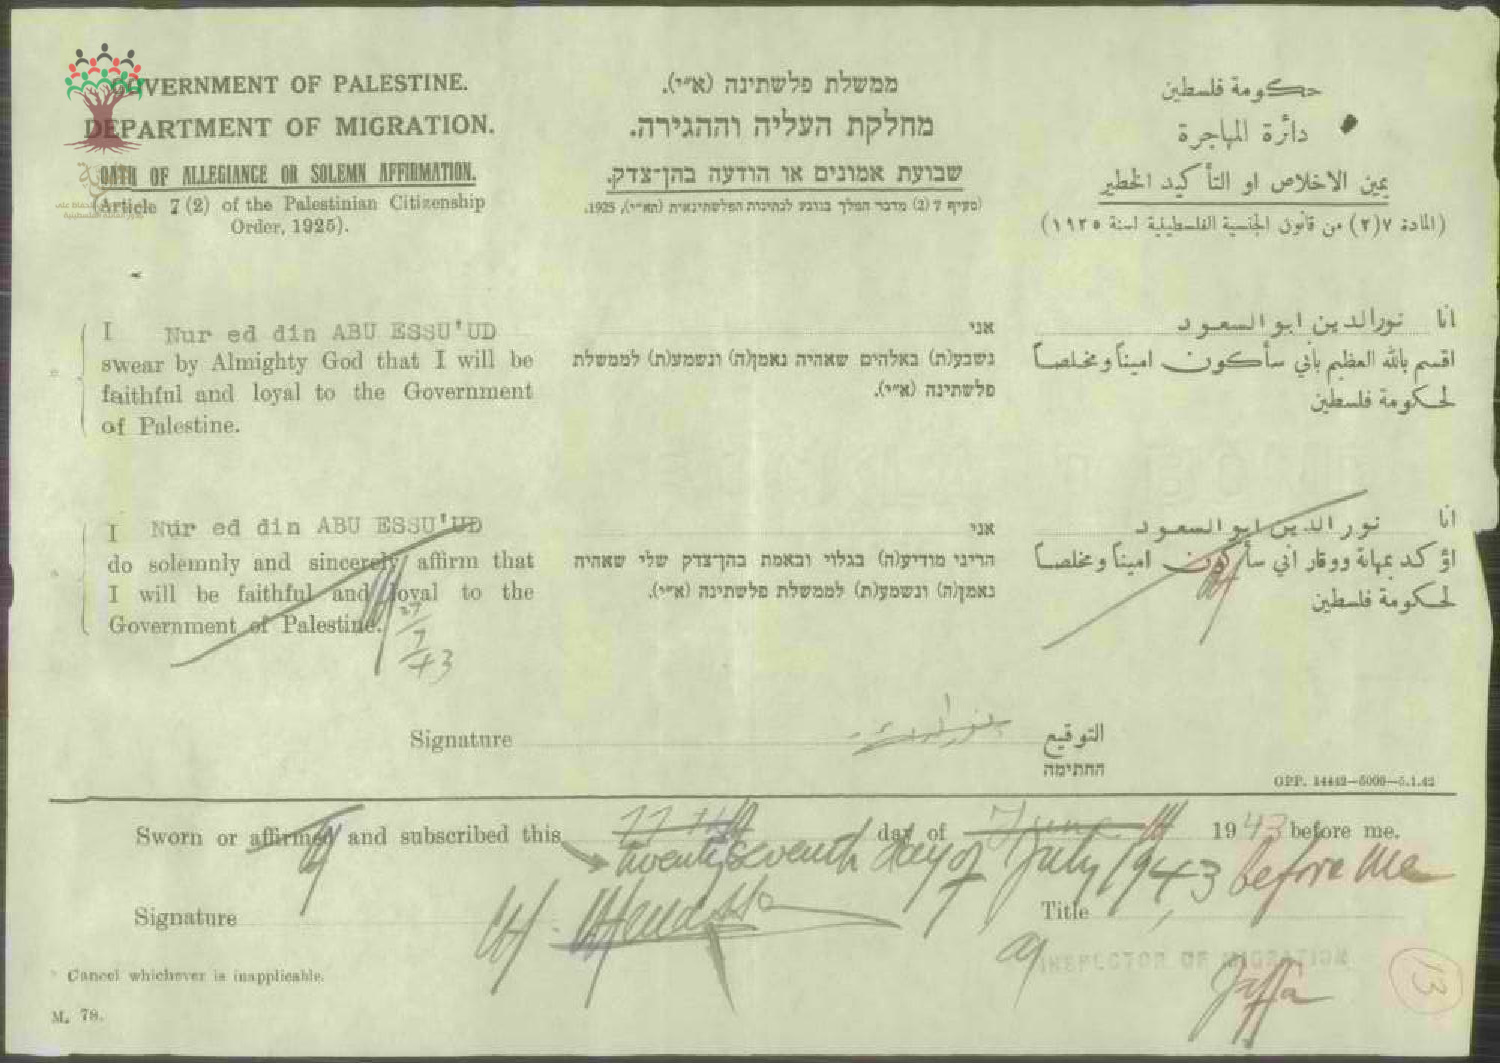 GOVERNMENT OF PALESTINE.
DEPARTMENT OF MIGRATION.
OATH OF ALLEGIANCE OR SOLEMN AFFIRMATION.
(Article 7 (2) of the Palestinian Citizenship
Order, 1925).
ממשלת פלשתינה (א״י).
מחלקת העליה וההגירה.
שבועת אמונים או הודעה בהן־צדק.
(סעיף 7 (2) מדבר המלך בנוגע לנתינות הפלשתינאית (הא״י), 1925.
حكومة فلسطين
دائرة المهاجرة
يمين الاخلاص او التأكيد الخطير
(المادة ٧(٢) من قانون الجنسية الفلسطينية لسنة ١٩٢٥)
I Nur ed din ABU ESSU'UD
swear by Almighty God that I will be
faithful and loyal to the Government
of Palestine.
אני
נשבע(ת) באלהים שאהיה נאמן(ה) ונשמע(ת) לממשלת
פלשתינה (א״י).
انا نور الدين ابو السعود
اقسم بالله العظيم بأني سأكون اميناً ومخلصاً
لحكومة فلسطين
I Nur ed din ABU ESSU'UD
do solemnly and sincerely affirm that
I will be faithful and loyal to the
Government of Palestine.
27/7/43
אני
הריני מודיע(ה) בגלוי ובאמת בהן־צדק שלי שאהיה
נאמן(ה) ונשמע(ת) לממשלת פלשתינה (א״י).
انا نور الدين ابو السعود
اؤكد بمهابة ووقار اني سأكون اميناً ومخلصاً
لحكومة فلسطين
Signature
التوقيع
החתימה
GPP. 14442—5000—5.1.42
Sworn or affirmed and subscribed this day of June 1943 before me.
twenty seventh day of July 1943 before me
Signature Title
INSPECTOR OF MIGRATION
Jaffa
13
* Cancel whichever is inapplicable.
M. 78.